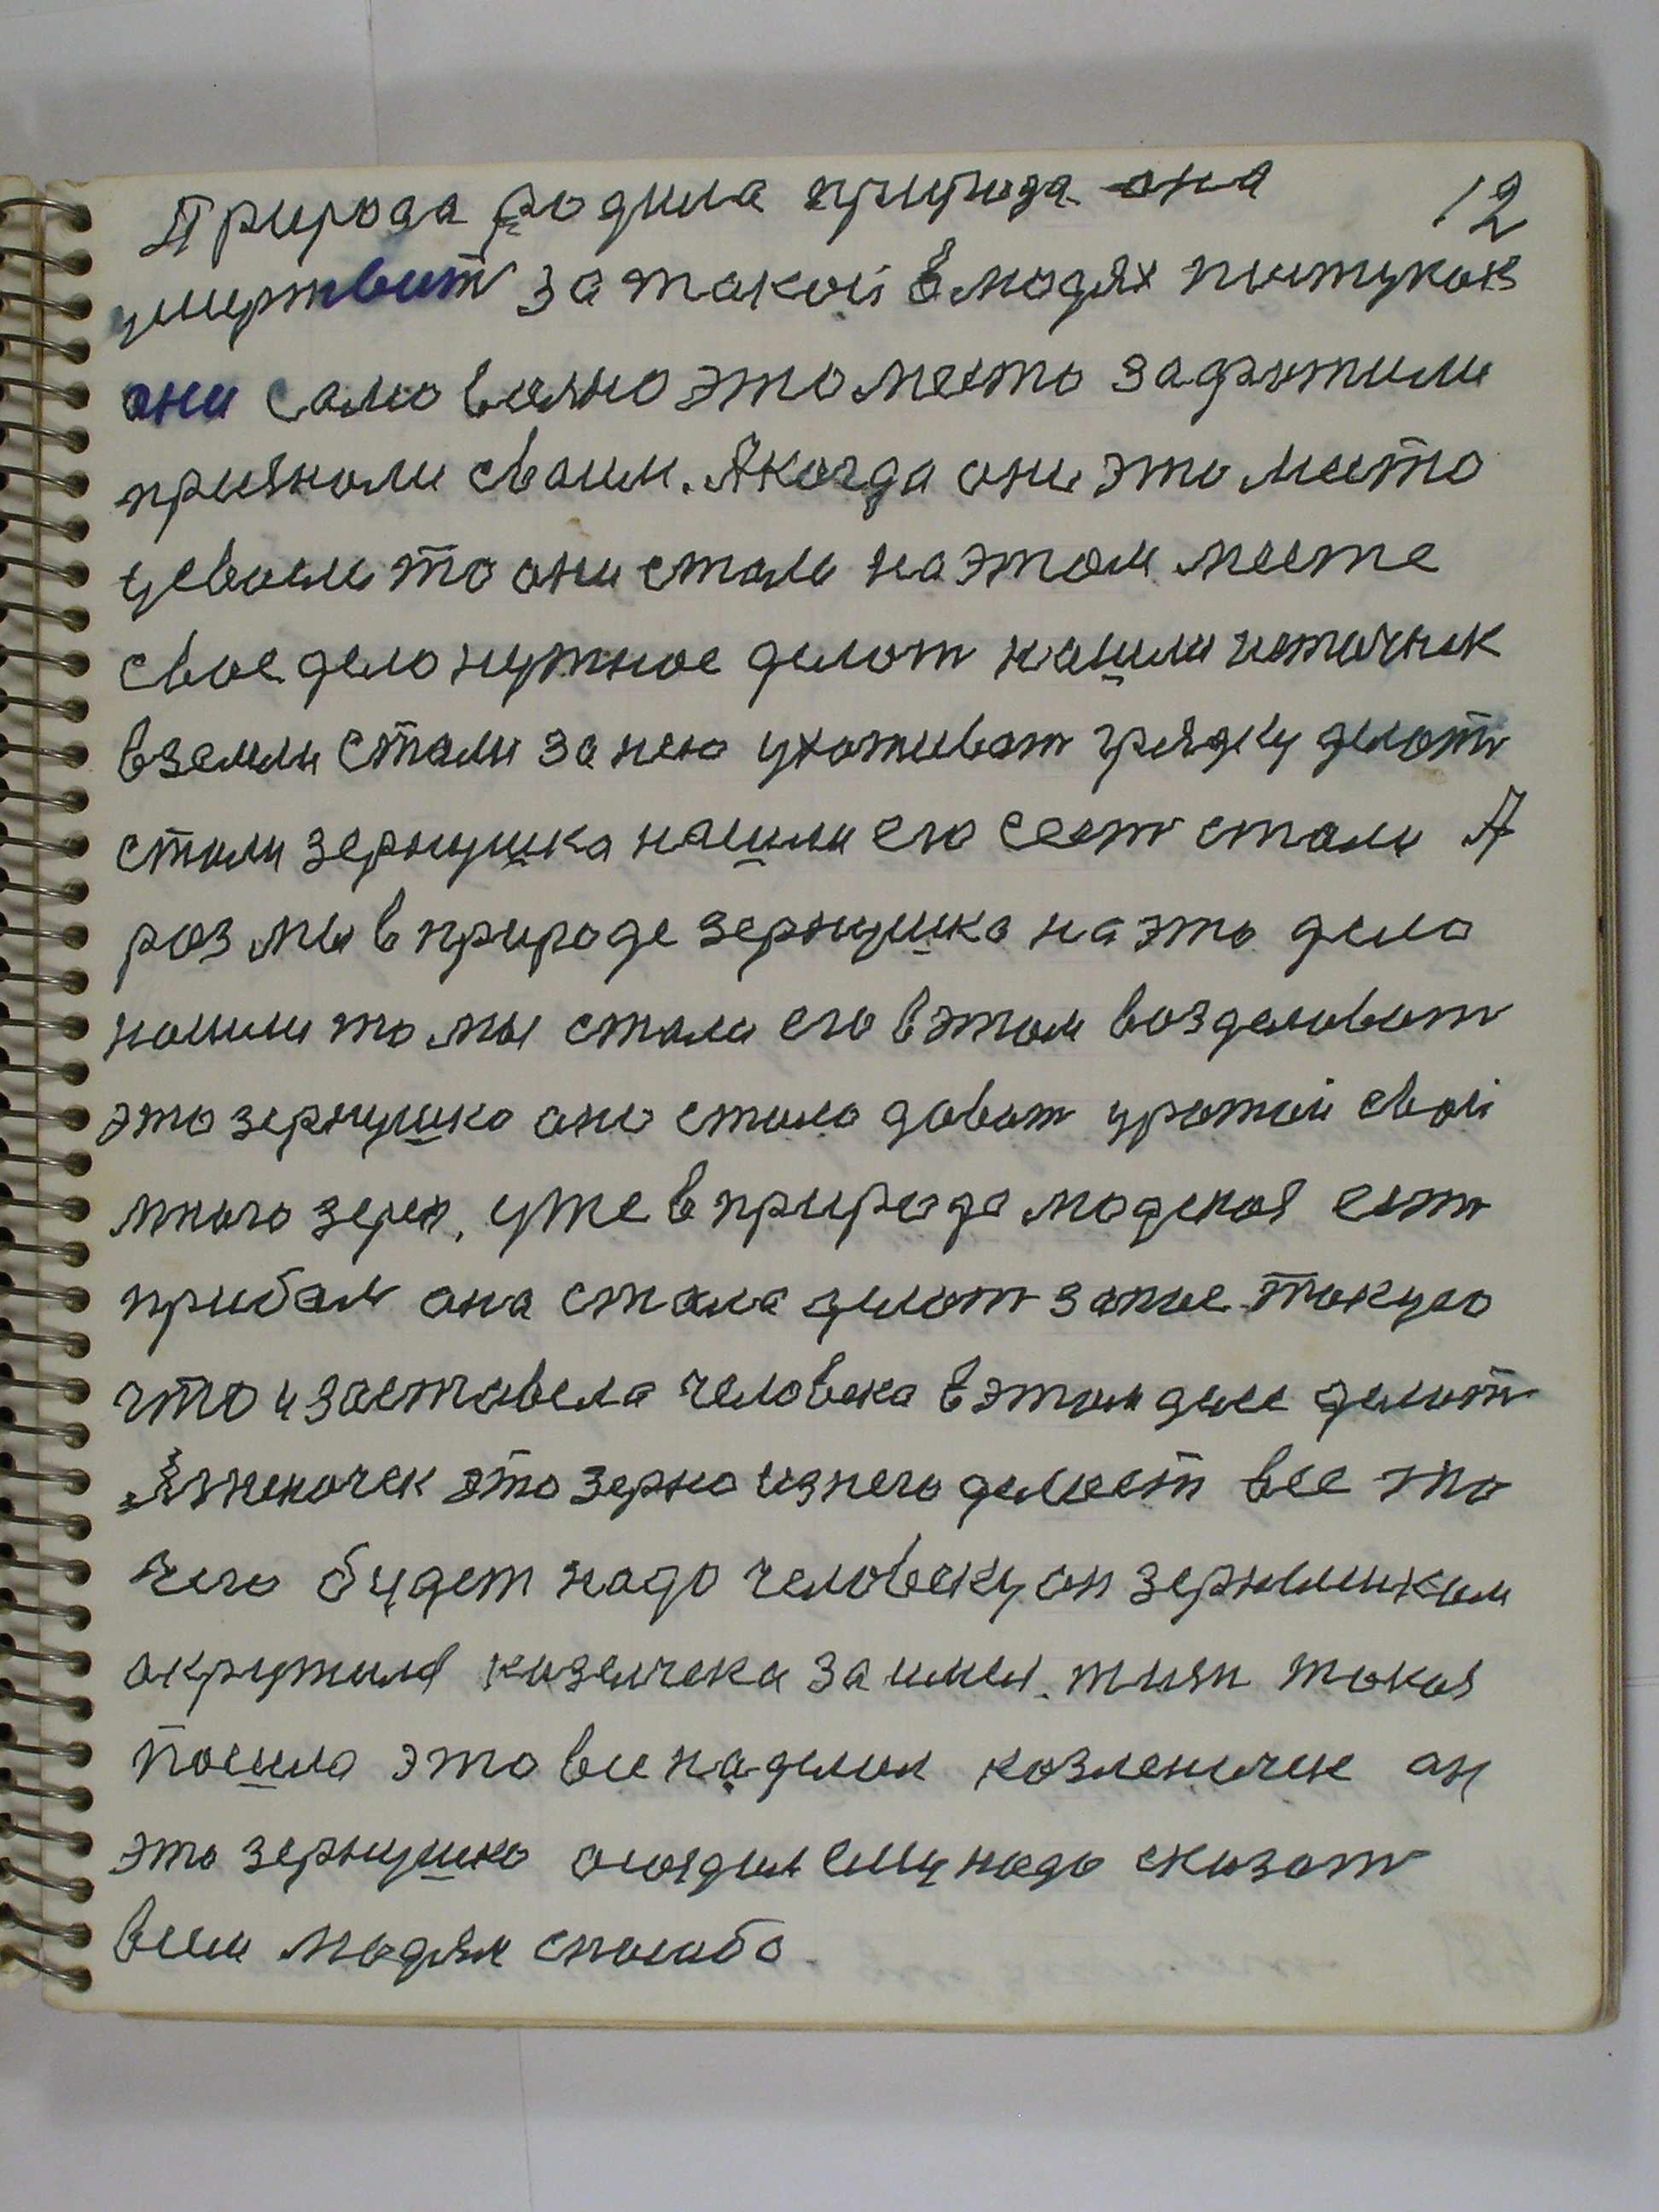 Природа родила природа она 12
умертвит за такой в людях поступок
они само вольно это место
признали своим. А когда они это место
усвоили то они стали на этом месте
свое дело нужное делат нашли источник
в земли стали за нею ухаживат грядку делат
стали зернушка нашли его сеят стали А
раз мы в природе зернушка на это дело
нашли то мы стали его в этом возделоват
это зернушко оно стало дават урожай свой
много зерен, уже в природа людская ест
прибал она стала делат такую
что и заставела человека в этом деле делат
это зерно из него делает все это
чего будет надо человеку он зернышком
окружил за
пошла это все наделил он
это зернушко ему надо сказат
всем людям спасибо